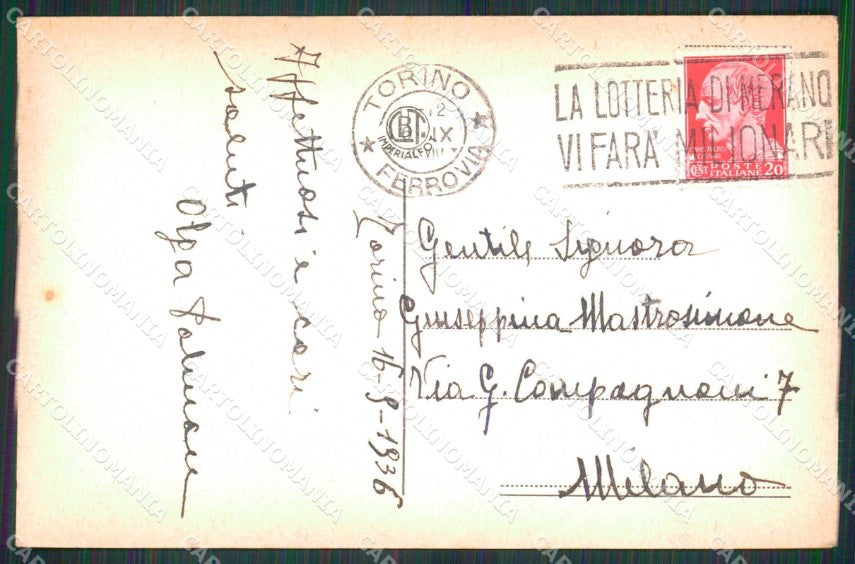 Affettuosi e cari
saluti
Olga
Torino 16-9-1936
TORINO
FERROVIA
LA LOTTERIA DI MERANO
VI FARÀ MILIONARI
POSTE
ITALIANE 20
Gentile Signora
Giuseppina Mastrosimone
Via G. Compagnoni 7
Milano
CARTOLINOMANIA